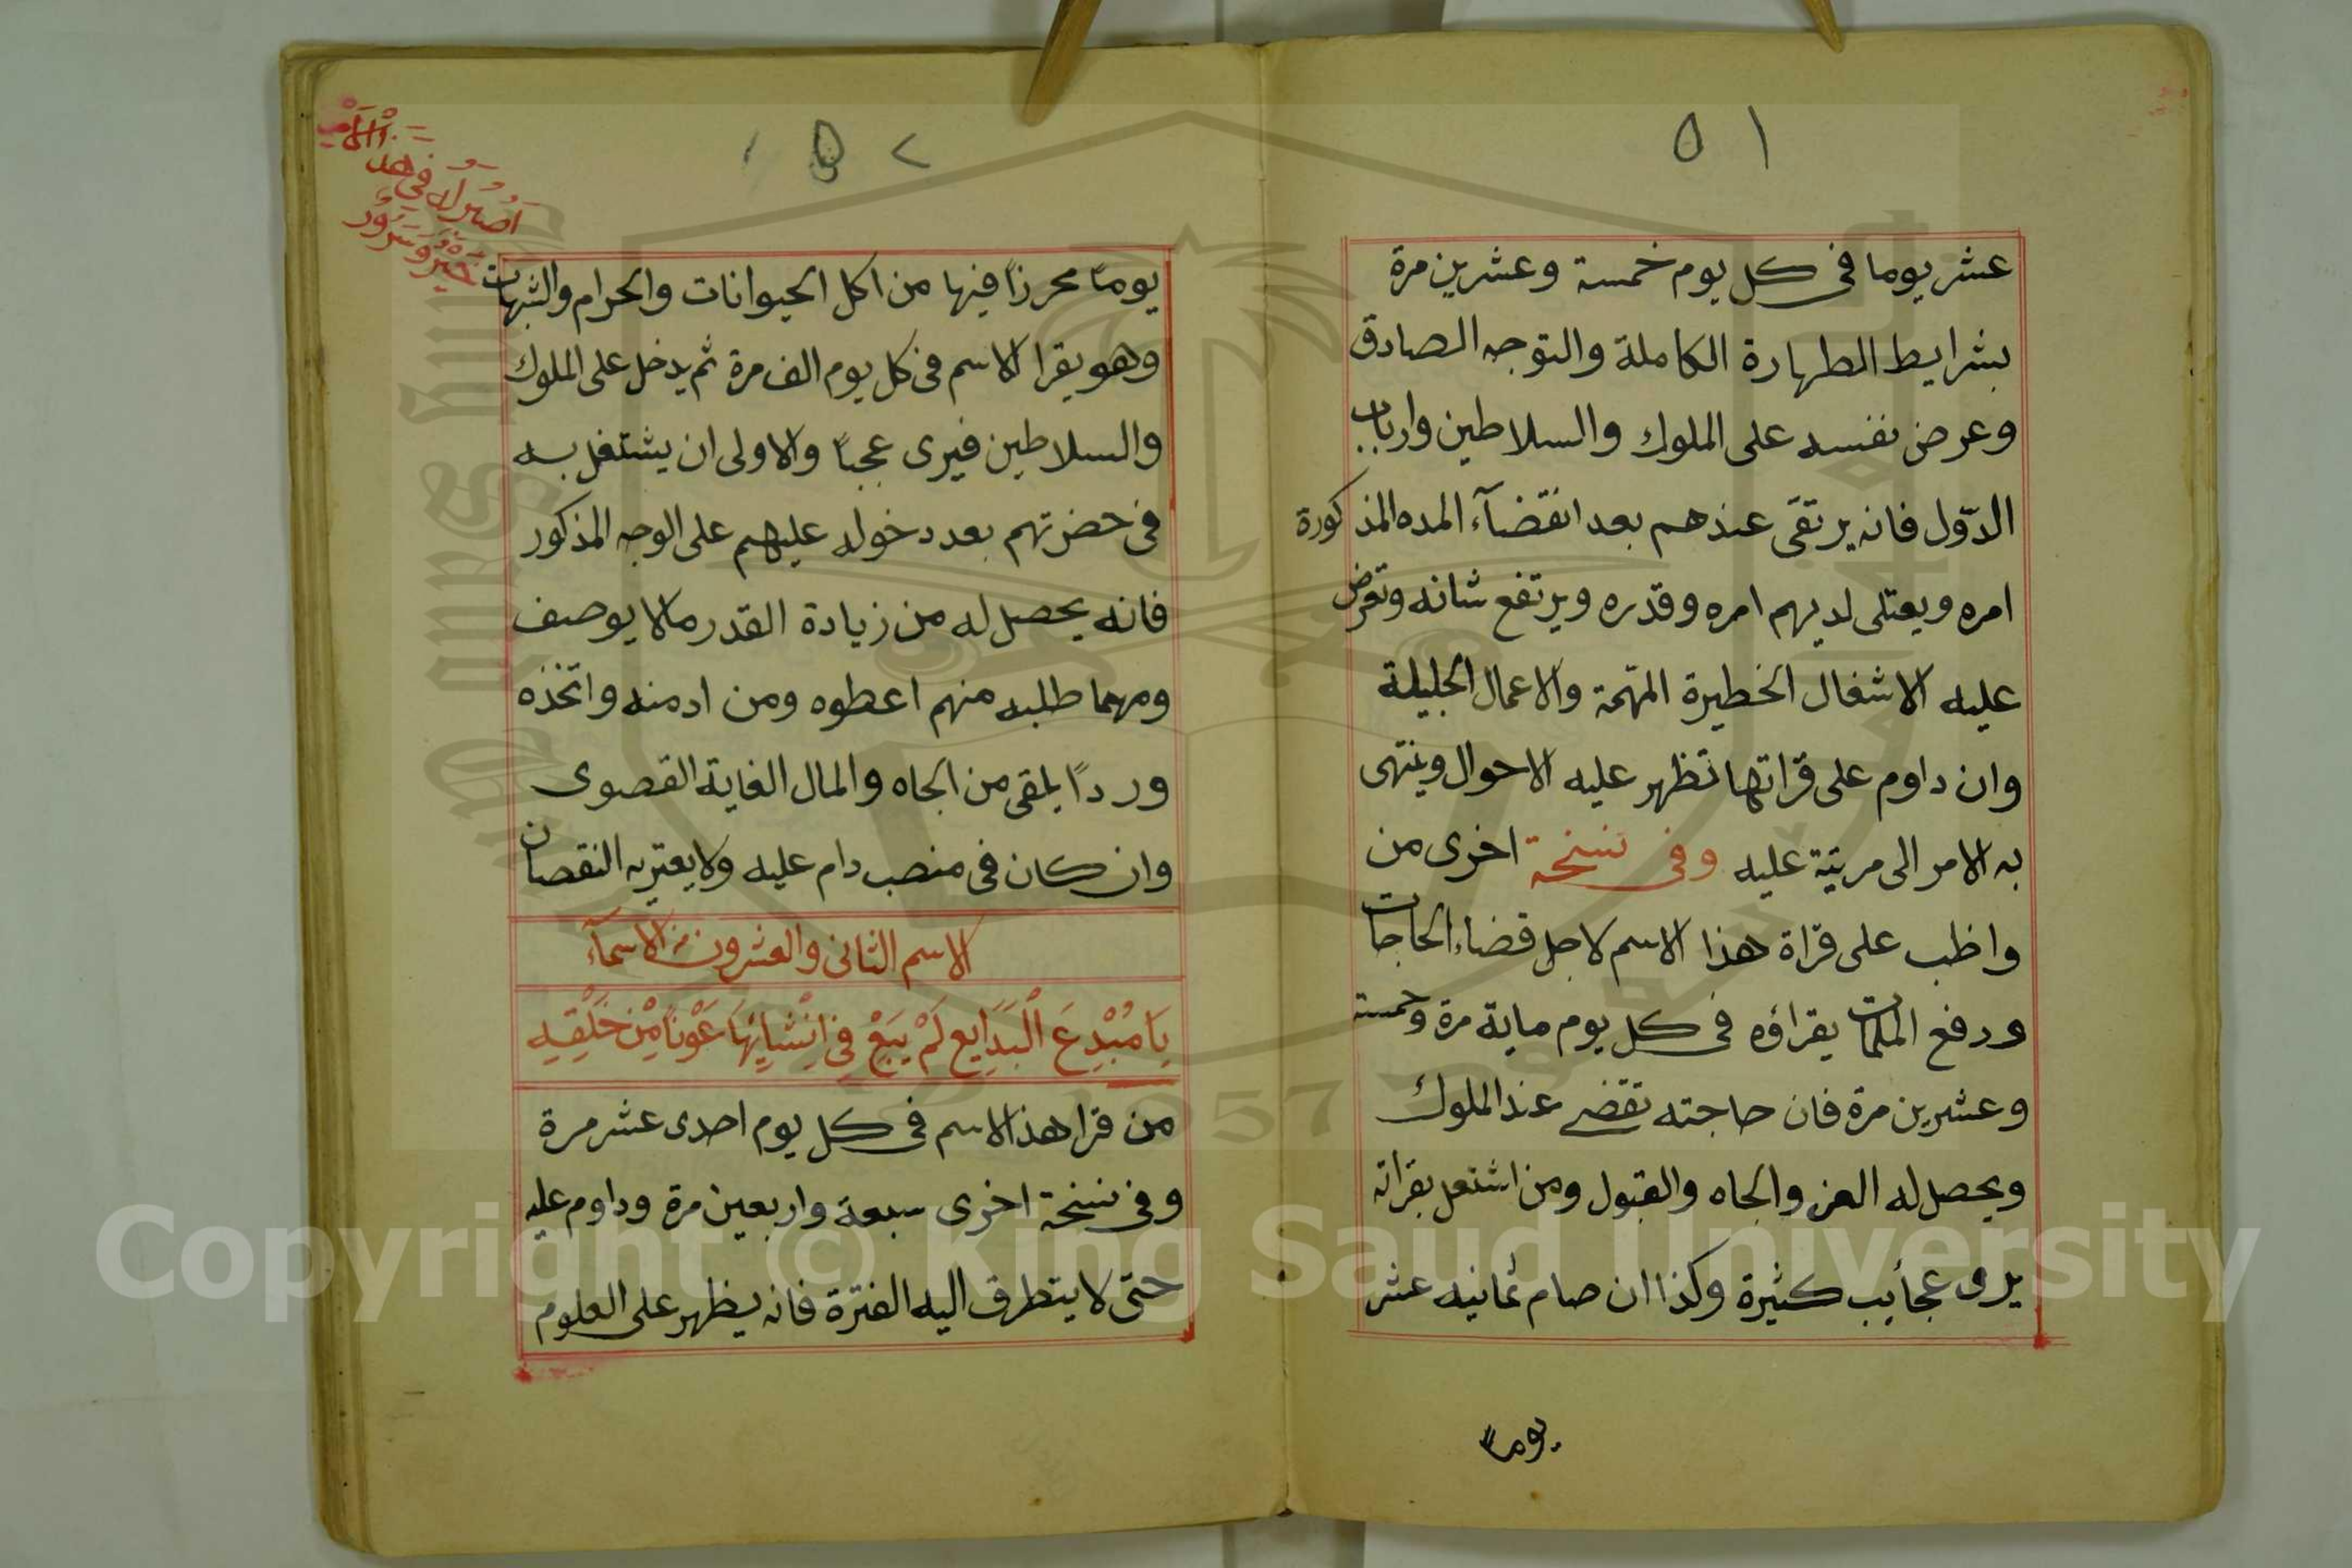 ٥١
عشر يوما فى كل يوم خمسة وعشرين مرة
بشرايط الطهارة الكاملة والتوجه الصادق
وعرض نفسه على الملوك والسلاطين وارباب
الدّول فانه يرتقى عندهم بعد انقضآء المده المذكورة
امره ويعتلى لديهم امره وقدره ويرتفع شانه وتعرض
عليه الاشغال الخطيرة المهّمة والاعمال الجليلة
وان داوم على قراتها تظهر عليه الاحوال وينتهى
به الامر الى مرتبة عليه وفى نسخة اخرى من
واظب على قراة هذا الاسم لاجل قضاء الحاجات
ودفع الملمات يقراؤه فى كل يوم ماية مرة وخمسة
وعشرين مرة فان حاجته تقضى عند الملوك
ويحصل له العز والجاه والقبول ومن اشتغل بقراته
يرى عجأيب كثيرة وكذا ان صام ثمانيه عشر
يوماً
٥٢
يوماً محرزاً فيها من اكل الحيوانات والحرام والشبهات
وهو يقرا الاسم فى كل يوم الف مرة ثم يدخل على الملوك
والسلاطين فيرى عجباً والاولى ان يشتغل به
فى حضرتهم بعد دخوله عليهم على الوجه المذكور
فانه يحصل له من زيادة القدر مالا يوصف
ومهما طلبه منهم اعطوه ومن ادمنه واتخذه
ورداً يلقى من الجاه والمال الغاية القصوى
وان كان فى منصب دام عليه ولا يعتريه النقصان
الاسم الثانى والعشرون من الاسمآء
يَا مُبْدِعَ الْبَدَايِع لَمْ يَبَغْ فِى اِنْشَايِهَا عَوْنَاً مِنْ خَلْقِهِ
من قرا هذا الاسم فى كل يوم احدى عشر مرة
وفى نسخة اخرى سبعة واربعين مرة وداوم عليه
حتى لا يتطرق اليه الفترة فانه يظهر على العلوم
Copyright © King Saud University
1957